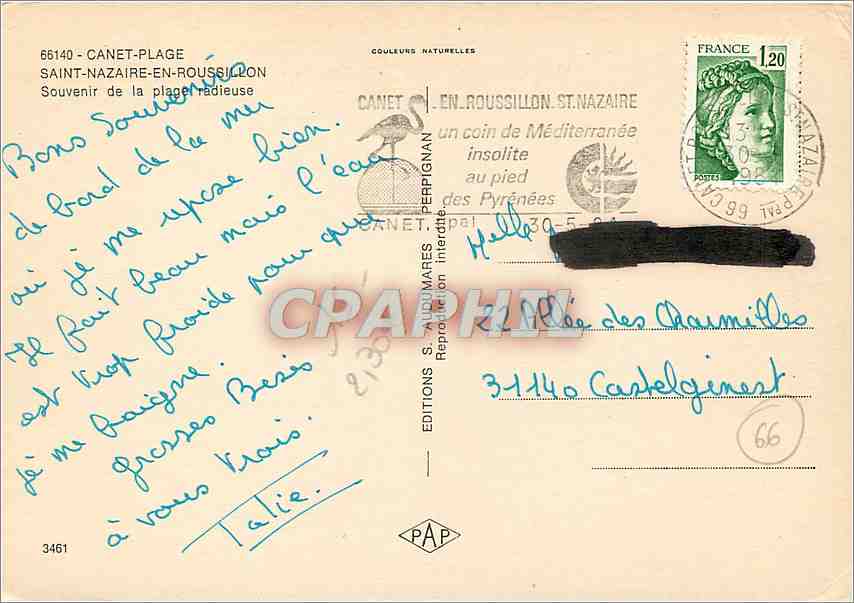 66140 - CANET-PLAGE
SAINT-NAZAIRE-EN-ROUSSILLON
Souvenir de la plage radieuse
COULEURS NATURELLES
Bons Souvenirs
de bord de la mer
où je me repose bien.
Il fait beau mais l'eau
est trop froide pour que
je me baigne.
grosses Bises
à vous trois.
Tatie.
2,30
3461
EDITIONS S. AUDUMARES PERPIGNAN
Reproduction interdite
PAP
CANET EN ROUSSILLON ST. NAZAIRE
un coin de Méditerranée
insolite
au pied
des Pyrénées
CANET. pal 30-5
FRANCE 1,20
POSTES
66 CANET ST-NAZAIRE PPAL
CPAPHIL
Melle
22 Allée des Charmilles
31140 Castelginest
66